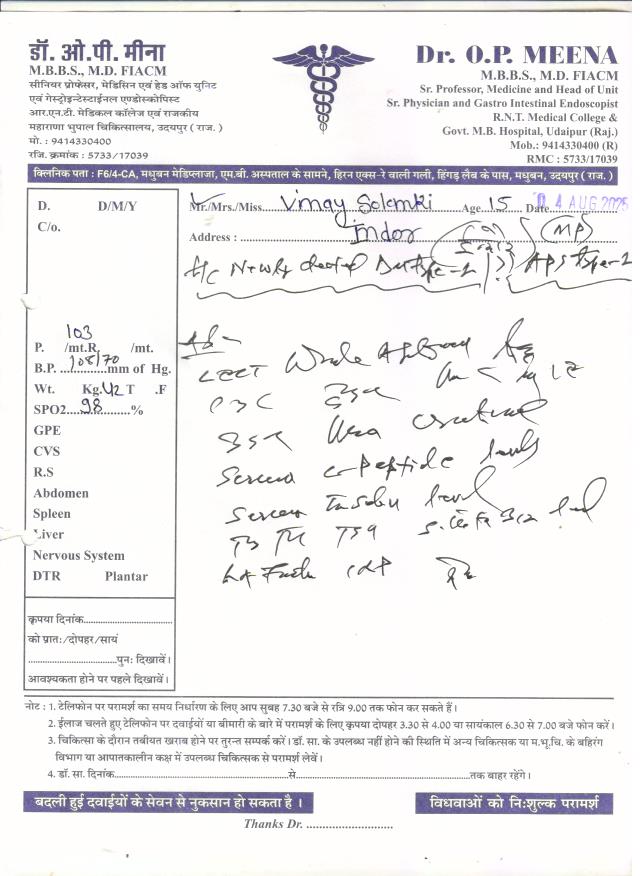 डॉ. ओ.पी. मीना
M.B.B.S., M.D. FIACM
सीनियर प्रोफेसर, मेडिसिन एवं हेड ऑफ युनिट
एवं गेस्ट्रोइन्टेस्टाईनल एण्डोस्कोपिस्ट
आर.एन.टी. मेडिकल कॉलेज एवं राजकीय
महाराणा भुपाल चिकित्सालय, उदयपुर ( राज. )
मो. : 9414330400
रजि. क्रमांक : 5733/17039
Dr. O.P. MEENA
M.B.B.S., M.D. FIACM
Sr. Professor, Medicine and Head of Unit
Sr. Physician and Gastro Intestinal Endoscopist
R.N.T. Medical College &
Govt. M.B. Hospital, Udaipur (Raj.)
Mob.: 9414330400 (R)
RMC : 5733/17039
क्लिनिक पता : F6/4-CA, मधुबन मेडिप्लाजा, एम.बी. अस्पताल के सामने, हिरन एक्स-रे वाली गली, हिंगड़ लैब के पास, मधुबन, उदयपुर ( राज. )
D. D/M/Y
C/o.
Mr./Mrs./Miss. Vinay Solanki Age 15 Date 04 AUG 2025
Address : Indor (MP)
H/C Newly detected type-1
P. 103 /mt.R. /mt.
B.P. 108/70 mm of Hg.
Wt. Kg. 42 T .F
SPO2 98 %
GPE
CVS
R.S
Abdomen
Spleen
Liver
Nervous System
DTR Plantar
Adv-
CECT Whole
CBC
Urea
Serum C-Peptide levels
Serum Insulin level
T3 T4 TSH S. B12
कृपया दिनांक
को प्रातः/दोपहर/सायं
पुनः दिखावें।
आवश्यकता होने पर पहले दिखावें।
नोट : 1. टेलिफोन पर परामर्श का समय निर्धारण के लिए आप सुबह 7.30 बजे से रात्रि 9.00 तक फोन कर सकते हैं।
2. ईलाज चलते हुए टेलिफोन पर दवाईयों या बीमारी के बारे में परामर्श के लिए कृपया दोपहर 3.30 से 4.00 या सायंकाल 6.30 से 7.00 बजे फोन करें।
3. चिकित्सा के दौरान तबीयत खराब होने पर तुरन्त सम्पर्क करें। डॉ. सा. के उपलब्ध नहीं होने की स्थिति में अन्य चिकित्सक या म.भू.चि. के बहिरंग
विभाग या आपातकालीन कक्ष में उपलब्ध चिकित्सक से परामर्श लेवें।
4. डॉ. सा. दिनांक से तक बाहर रहेंगे।
बदली हुई दवाईयों के सेवन से नुकसान हो सकता है ।
विधवाओं को नि:शुल्क परामर्श
Thanks Dr.